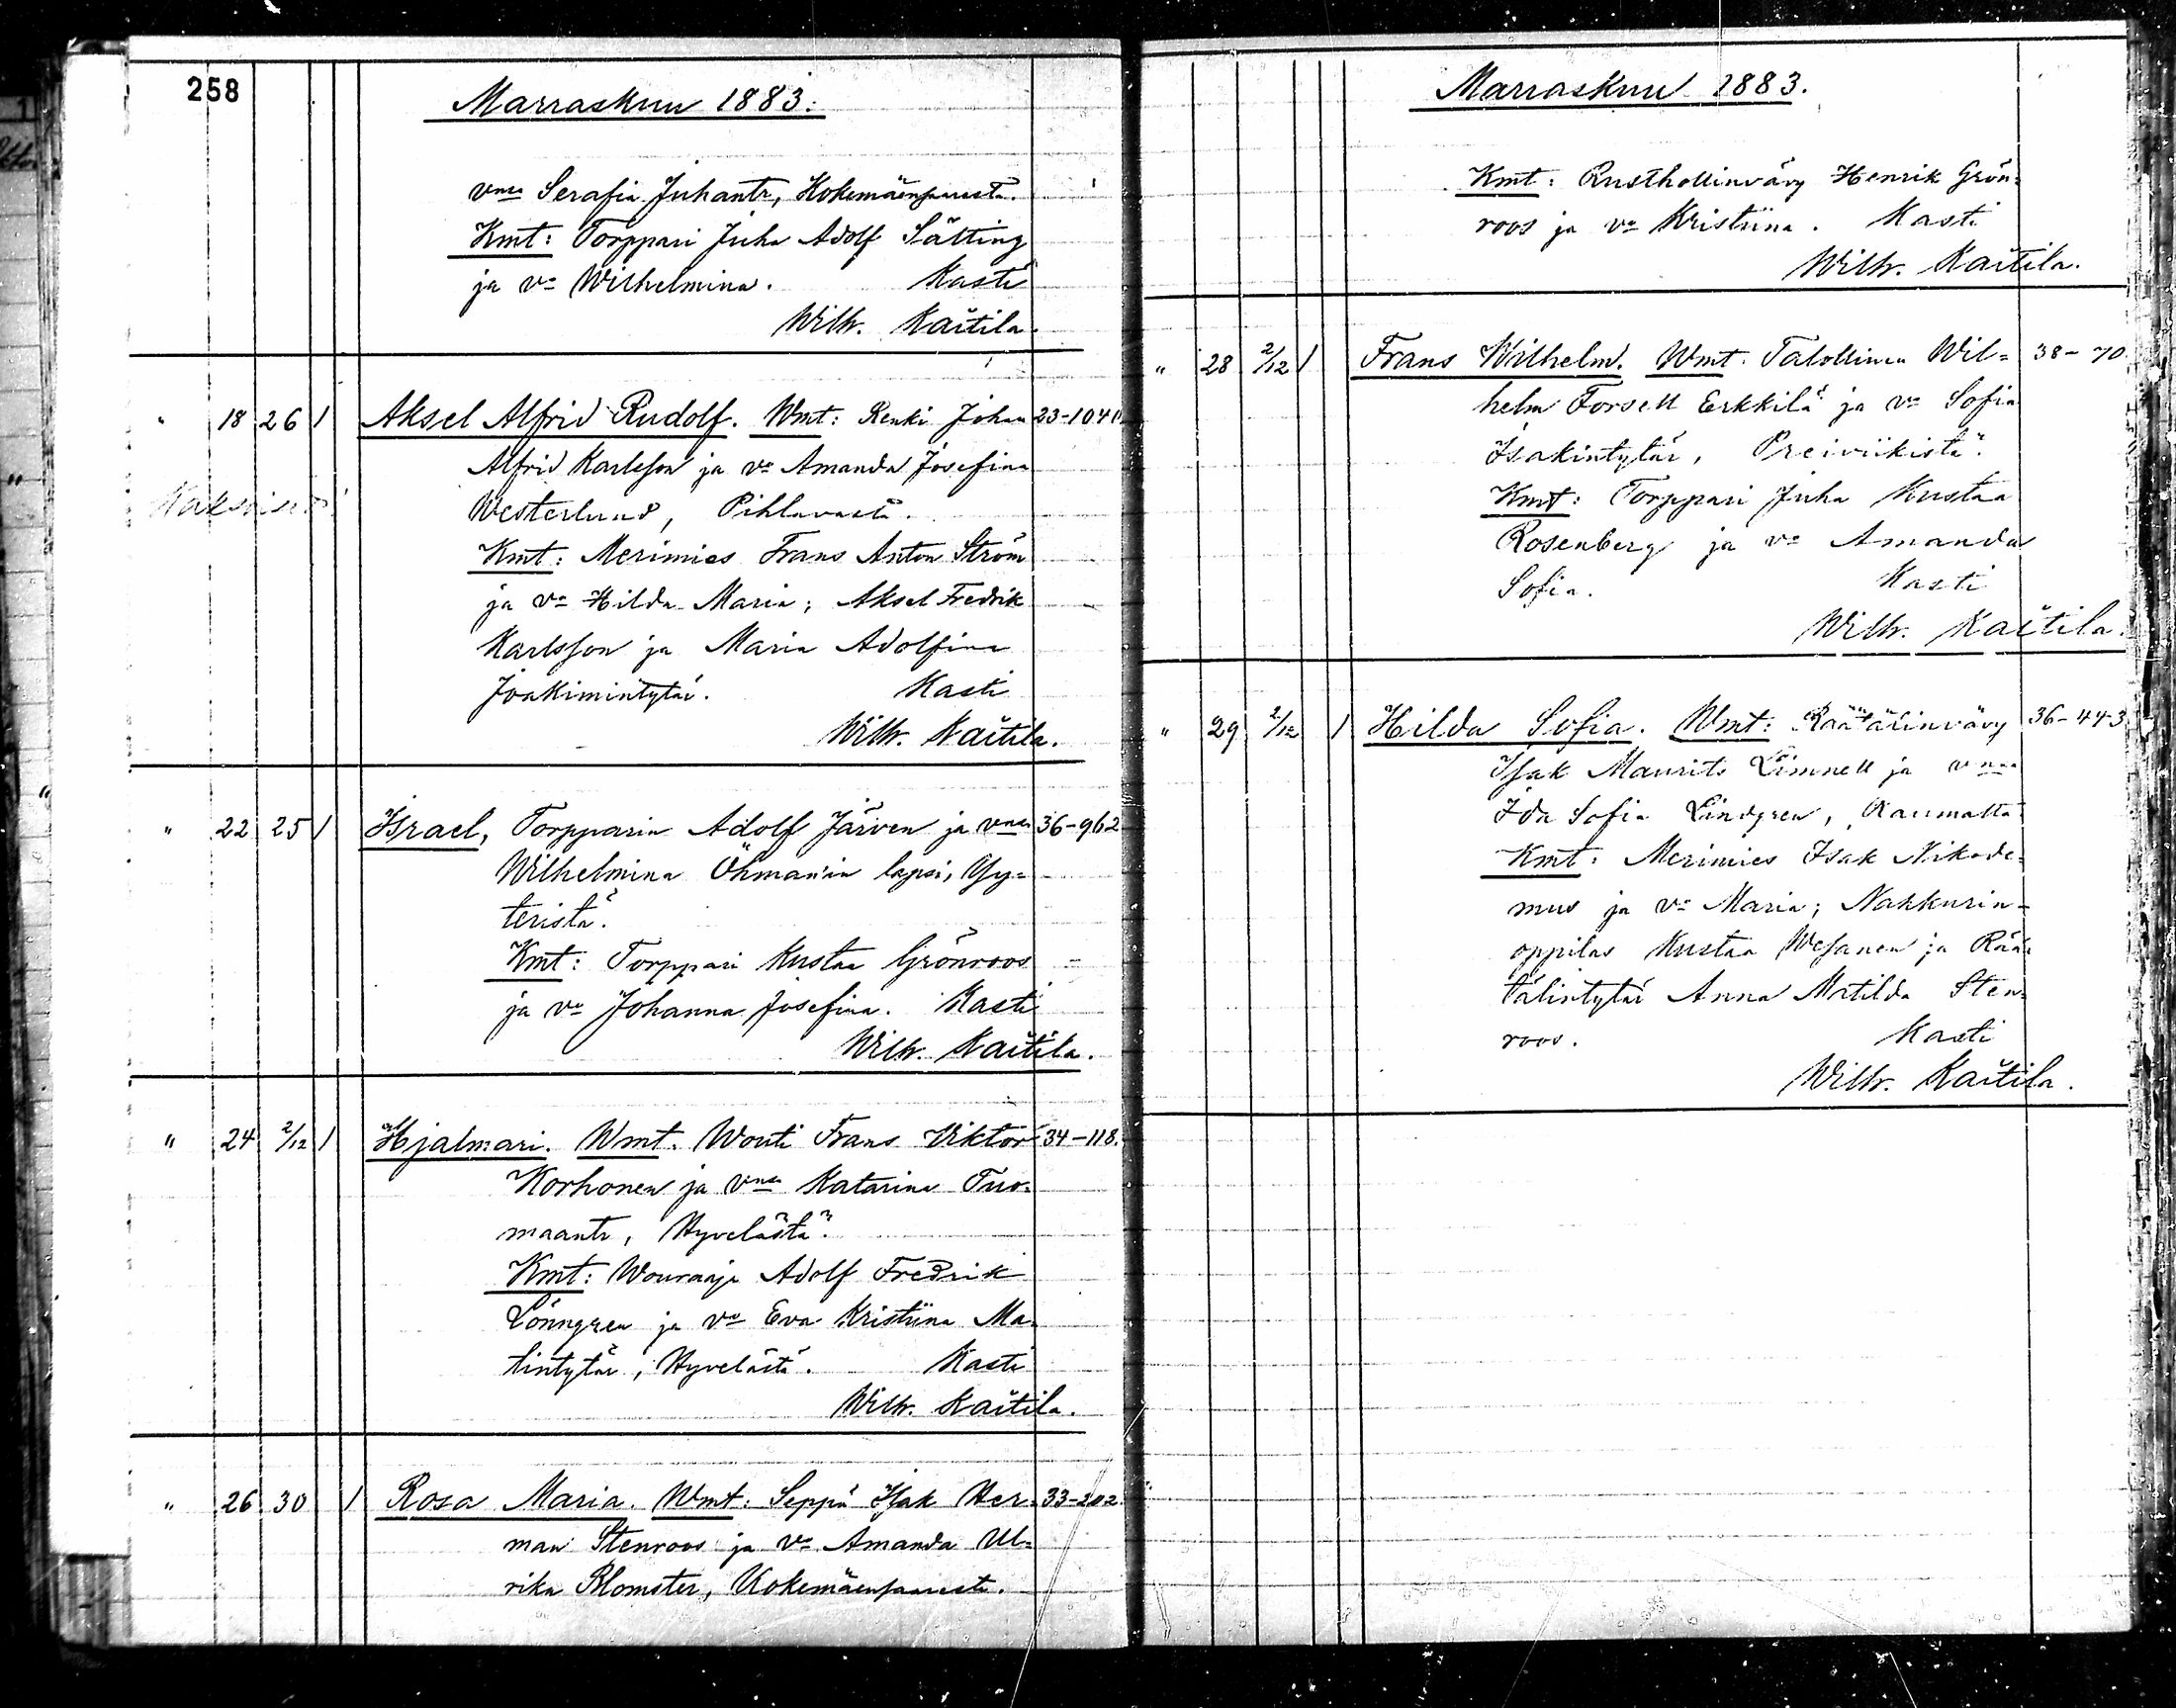 258
Marraskuu 1883.
vmsa Serafia Juhantr, Kokemäensaaresta.
Kmt: Torppari Juha Adolf Sätting
ja va Wilhelmina. Kasti
Wilh. Kaitila.
" 18 26 1 Aksel Alfrid Rudolf. Wmt: Renki Johan 23-1041
Alfrid Karlsson ja va Amanda Josefina
Westerlund, Pihlavasta.
Kmt: Merimies Frans Anton Ström
ja va Hilda Maria; Aksel Fredrik
Karlsson ja Maria Adolfina
Joakimintytär. Kasti
Wilh. Kaitila.
" 22 25 1 Israel, Torpparin Adolf Järven ja vmsa 36-962
Wilhelmina Öhmanin lapsi, Yy=
teristä.
Kmt: Torppari Kustaa Grönroos
ja va Johanna Josefina. Kasti
Wilh. Kaitila.
" 24 2/12 1 Hjalmari. Wmt. Wouti Frans Viktor 34-118.
Korhonen ja vmsa Katarina Tuo=
maantr, Hyvelästä.
Kmt: Wouraaja Adolf Fredrik
Lönngren ja va Eva Kristiina Ma=
tintytär, Hyvelästä. Kasti
Wilh. Kaitila.
" 26 30 1 Rosa Maria. Wmt: Seppä Isak Her= 33-202.
man Stenroos ja va Amanda Ul=
rika Blomster, Kokemäensaaresta.
Marraskuu 1883.
Kmt: Rusthollinvävy Henrik Grön=
roos ja va Kristiina. Kasti
Wilh. Kaitila.
" 28 2/12 1 Frans Wilhelm. Wmt. Talollinen Wil= 38-70.
helm Forsell Erkkilä ja va Sofia
Isakintytär, Preiviikistä.
Kmt: Torppari Juha Kustaa
Rosenberg ja va Amanda
Sofia. Kasti
Wilh. Kaitila.
" 29 2/12 1 Hilda Sofia. Wmt: Räätälinvävy 36-443
Isak Maurits Limnell ja vmsa
Ida Sofia Lindgren,
Kmt: Merimies Isak Nikode=
mus ja va Maria; Nahkurin-
oppilas Kustaa Wesanen ja Rää=
tälintytär Anna Matilda Sten=
roos. Kasti
Wilh. Kaitila.